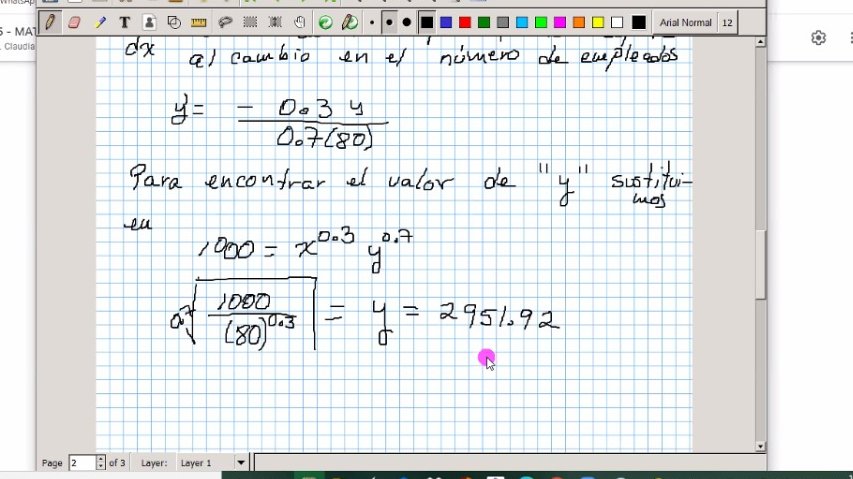 WhatsApp
S - MAT
. Claudia
Arial Normal 12
dx al cambio en el número de empleados
y' = - 0.3 y
0.7(80)
Para encontrar el valor de "y" sustitui-
mos
en
1000 = x^0.3 y^0.7
0.7√ 1000 = y = 2951.92
(80)^0.3
Page 2 of 3 Layer: Layer 1